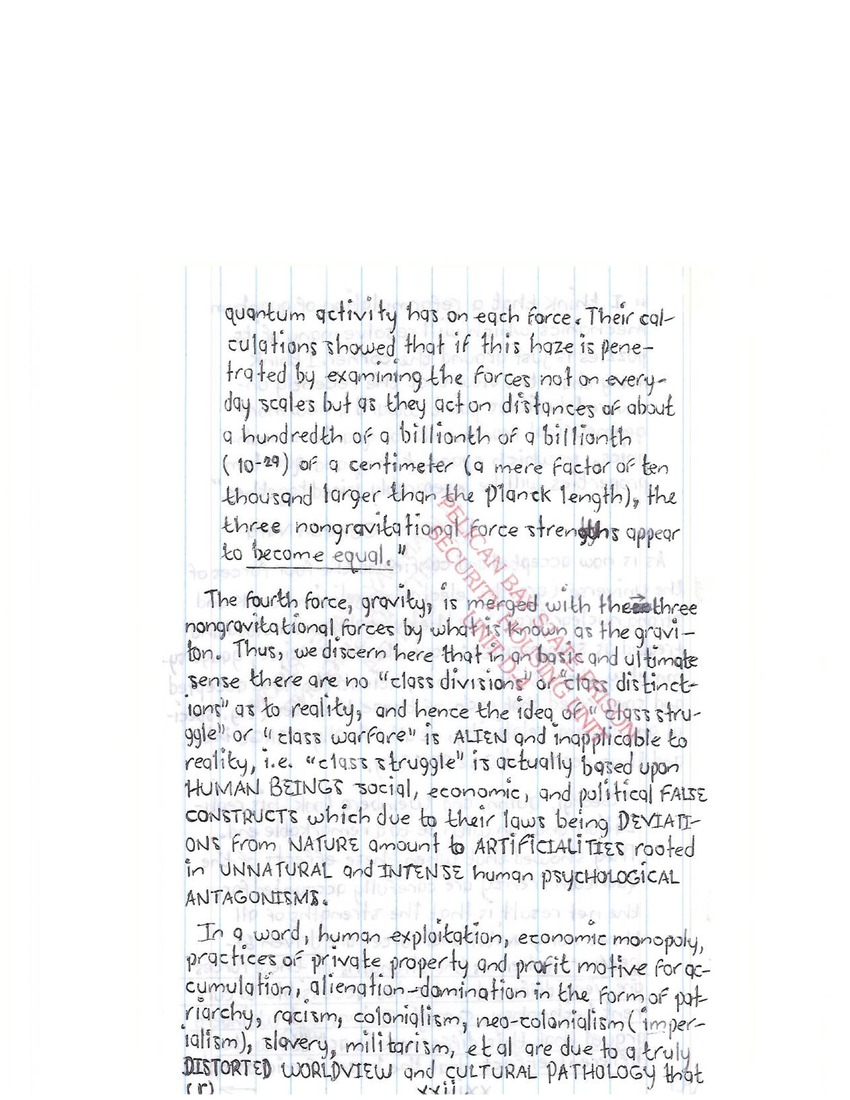 quantum activity has on each force. Their cal-
culations showed that if this haze is pene-
trated by examining the forces not on every-
day scales but as they act on distances of about
a hundredth of a billionth of a billionth
(10-29) of a centimeter (a mere factor of ten
thousand larger than the Planck length), the
three nongravitational force strengths appear
to become equal."
The fourth force, gravity, is merged with the three
nongravitational forces by what is known as the gravi-
ton. Thus, we discern here that in an basic and ultimate
sense there are no "class divisions" or "class distinct-
ions" as to reality, and hence the idea of "class stru-
ggle" or "class warfare" is ALIEN and inapplicable to
reality, i.e. "class struggle" is actually based upon
HUMAN BEINGS social, economic, and political FALSE
CONSTRUCTS which due to their laws being DEVIATI-
ONS from NATURE amount to ARTIFICIALITIES rooted
in UNNATURAL and INTENSE human PSYCHOLOGICAL
ANTAGONISMS.
In a word, human exploitation, economic monopoly,
practices of private property and profit motive for ac-
cumulation, alienation-domination in the form of pat-
riarchy, racism, colonialism, neo-colonialism (imper-
ialism), slavery, militarism, et al are due to a truly
DISTORTED WORLDVIEW and CULTURAL PATHOLOGY that
(r) xxii
PELICAN BAY STATE PRISON
SECURITY HOUSING UNIT
UNIT D-4